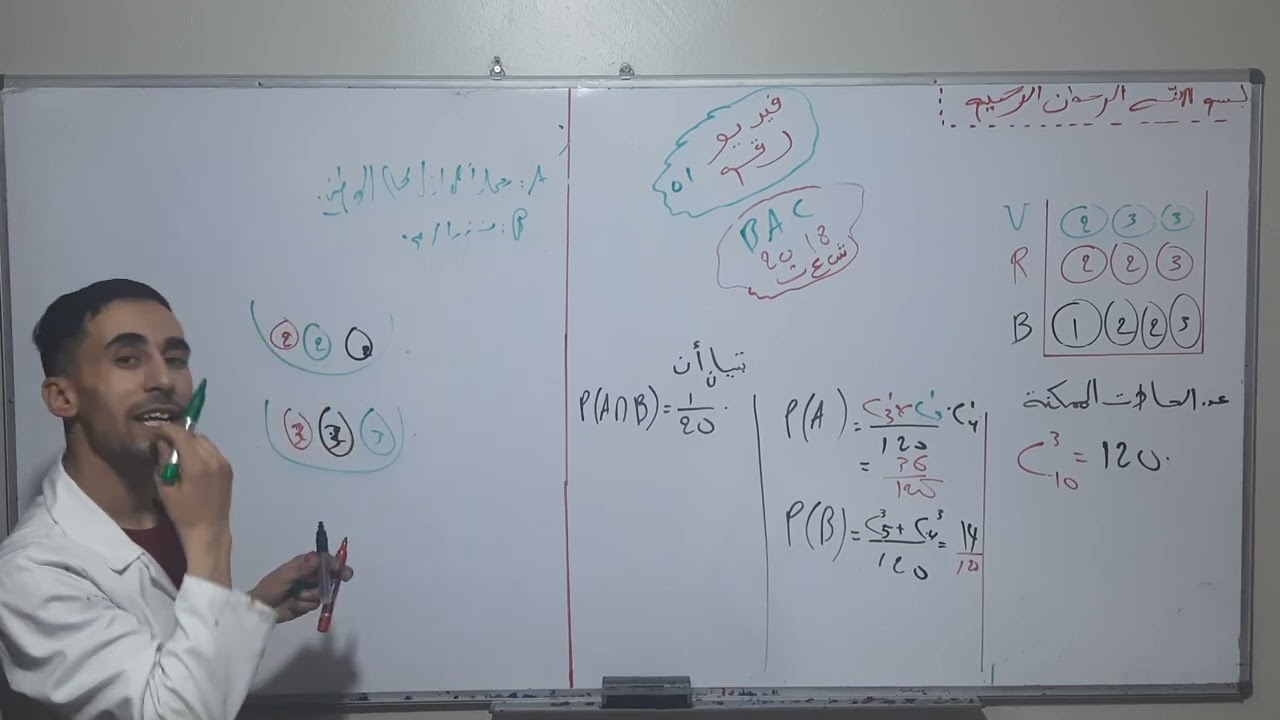 بسم الله الرحمان الرحيم
فيديو
رقم 01
BAC
2018
شعبة ع ت
V 2 3 3
R 2 2 3
B 1 2 2 3
عدد الحالات الممكنة
C³₁₀ = 120.
P(A) = C¹₃ × C¹₃ · C¹₄ / 120
= 36 / 120
P(B) = C³₅ + C³₄ / 120 = 14 / 120
تبيان أن
P(A∩B) = 1 / 20.
A:
B:
2 2 2
3 3 3